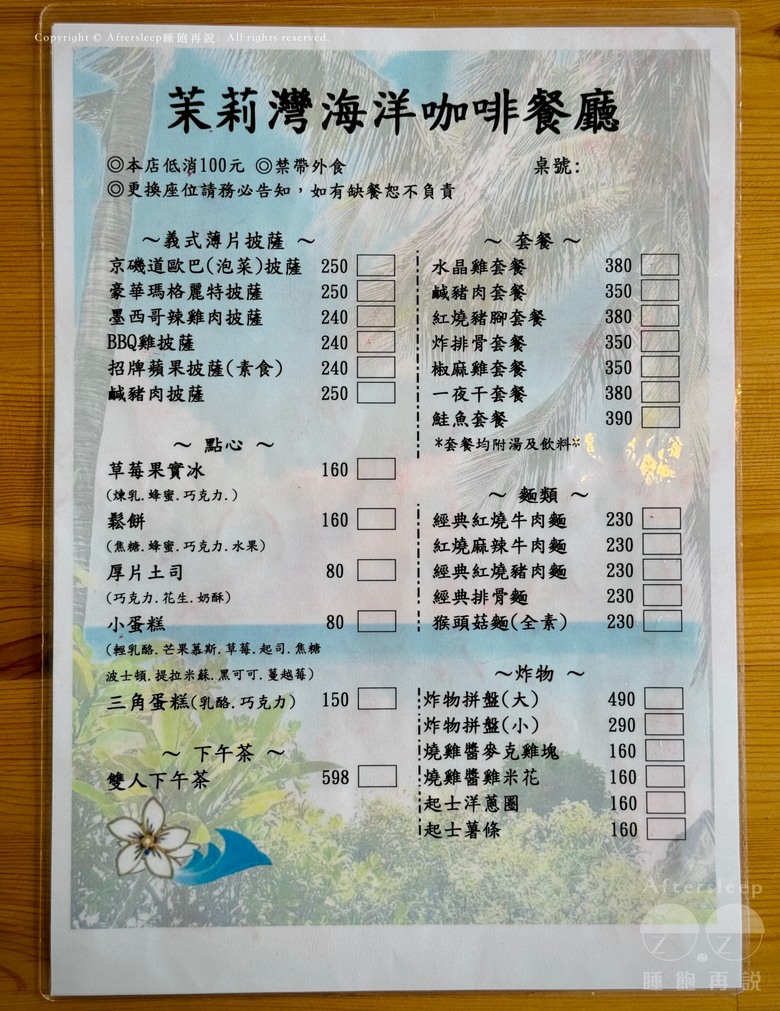 Copyright © Aftersleep睡飽再說. All rights reserved.
茉莉灣海洋咖啡餐廳
◎本店低消100元 ◎禁帶外食
桌號:
◎更換座位請務必告知，如有缺餐恕不負責
～義式薄片披薩～
京磯道歐巴(泡菜)披薩 250
豪華瑪格麗特披薩 250
墨西哥辣雞肉披薩 240
BBQ雞披薩 240
招牌蘋果披薩(素食) 240
鹹豬肉披薩 250
～ 點心 ～
草莓果實冰 160
(煉乳.蜂蜜.巧克力.)
鬆餅 160
(焦糖.蜂蜜.巧克力.水果)
厚片土司 80
(巧克力.花生.奶酥)
小蛋糕 80
(輕乳酪.芒果慕斯.草莓.起司.焦糖
波士頓.提拉米蘇.黑可可.蔓越莓)
三角蛋糕(乳酪.巧克力) 150
～ 下午茶 ～
雙人下午茶 598
～ 套餐 ～
水晶雞套餐 380
鹹豬肉套餐 350
紅燒豬腳套餐 380
炸排骨套餐 350
椒麻雞套餐 350
一夜干套餐 380
鮭魚套餐 390
*套餐均附湯及飲料*
～ 麵類 ～
經典紅燒牛肉麵 230
紅燒麻辣牛肉麵 230
經典紅燒豬肉麵 230
經典排骨麵 230
猴頭菇麵(全素) 230
～炸物 ～
炸物拼盤(大) 490
炸物拼盤(小) 290
燒雞醬麥克雞塊 160
燒雞醬雞米花 160
起士洋蔥圈 160
起士薯條 160
Aftersleep
z z
睡飽再說